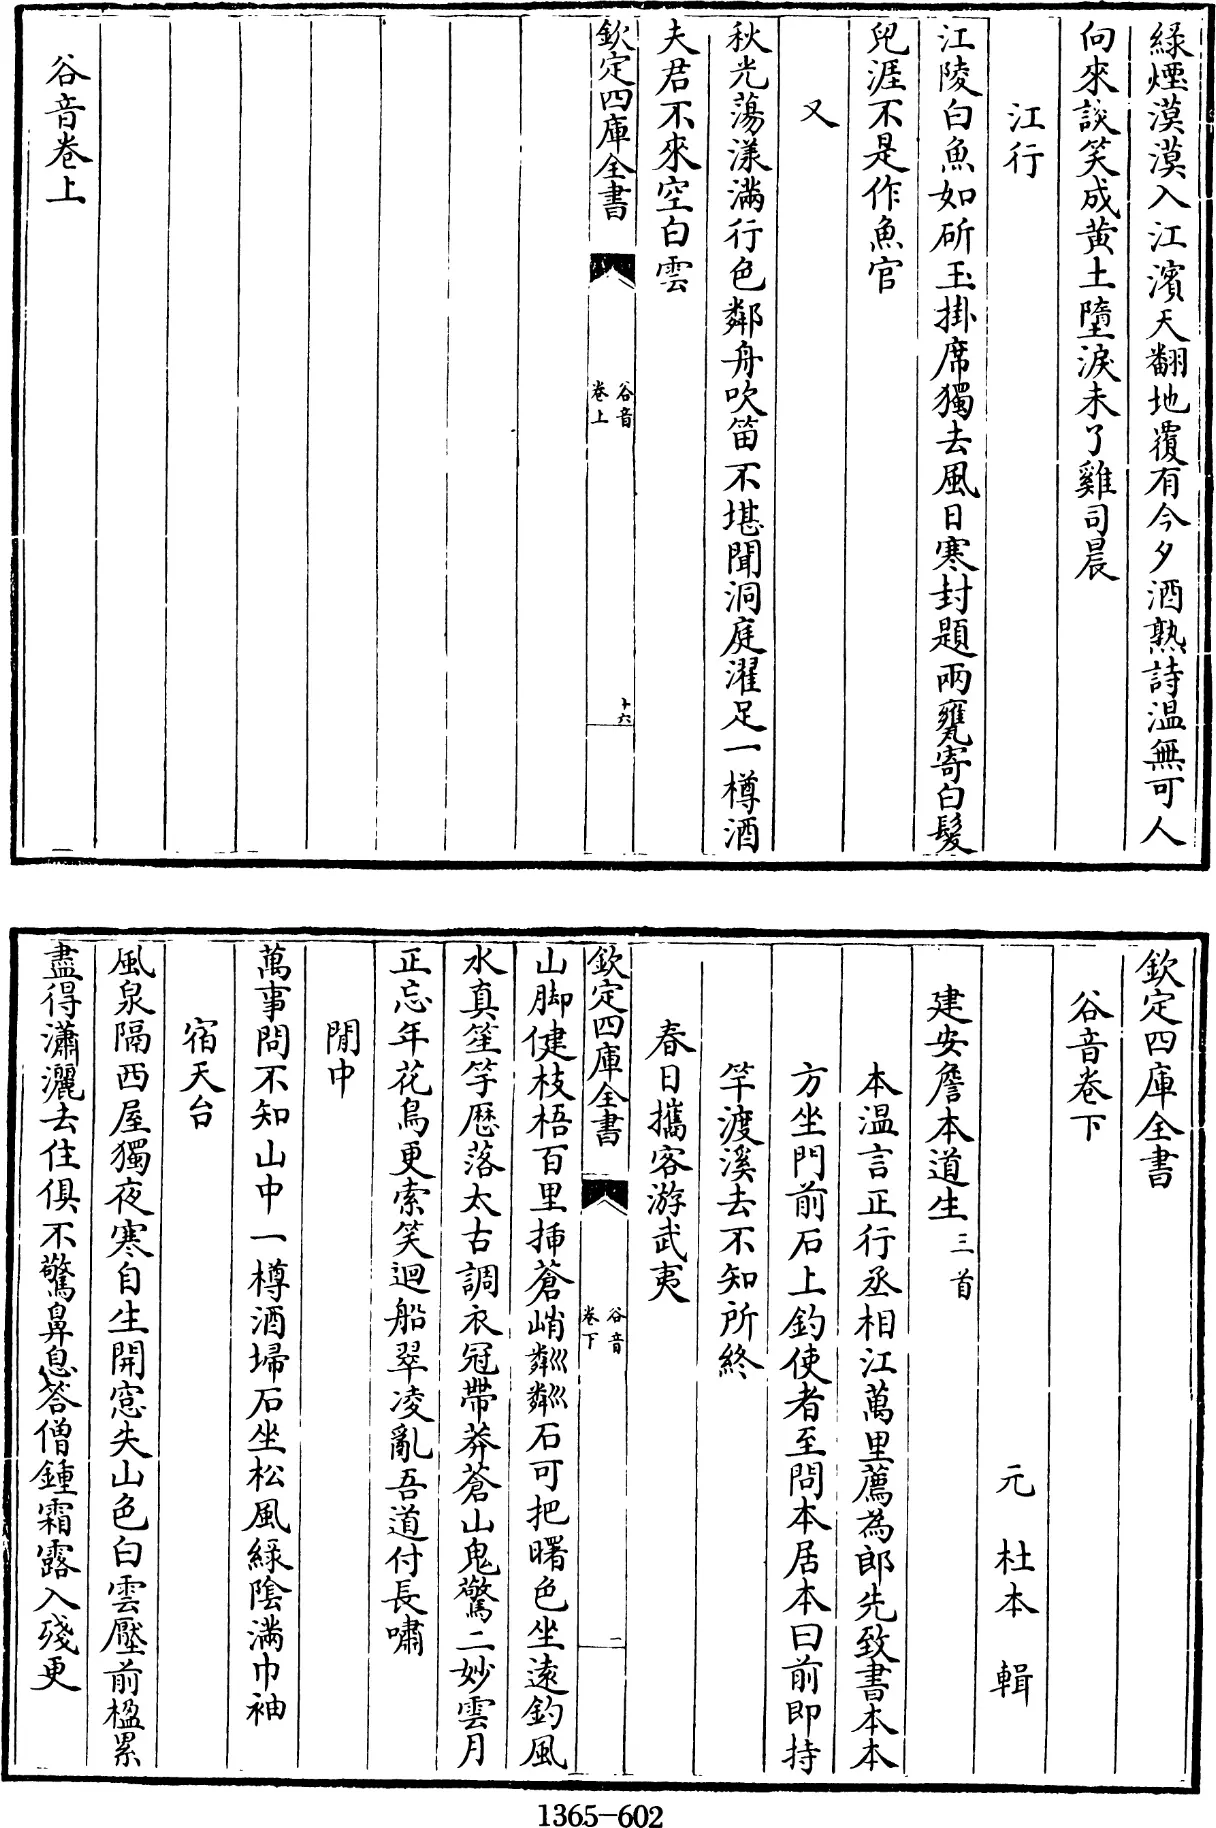 綠煙漠漠入江濱天翻地覆有今夕酒熟詩温無可人
向來談笑成黄土墮淚未了雞司晨
江行
江陵白魚如斫玉掛席獨去風日寒封題兩甕寄白髮
兒涯不是作魚官
又
秋光蕩漾滿行色鄰舟吹笛不堪聞洞庭濯足一樽酒
夫君不來空白雲
欽定四庫全書
谷音
卷上
十六
谷音卷上
欽定四庫全書
谷音卷下
元 杜本 輯
建安詹本道生三首
本温言正行丞相江萬里薦為郎先致書本本
方坐門前石上釣使者至問本居本曰前即持
竿渡溪去不知所終
春日攜客游武夷
山脚健枝梧百里揷蒼峭粼粼石可把曙色坐遠釣風
水真笙竽歷落太古調衣冠帶莽蒼山鬼驚二妙雲月
正忘年花鳥更索笑迴船翠凌亂吾道付長嘯
欽定四庫全書
谷音
卷下
一
閒中
萬事問不知山中一樽酒埽石坐松風綠陰滿巾袖
宿天台
風泉隔西屋獨夜寒自生開窓失山色白雲壓前楹累
盡得瀟灑去住俱不驚鼻息荅僧鍾霜露入殘更
1365-602